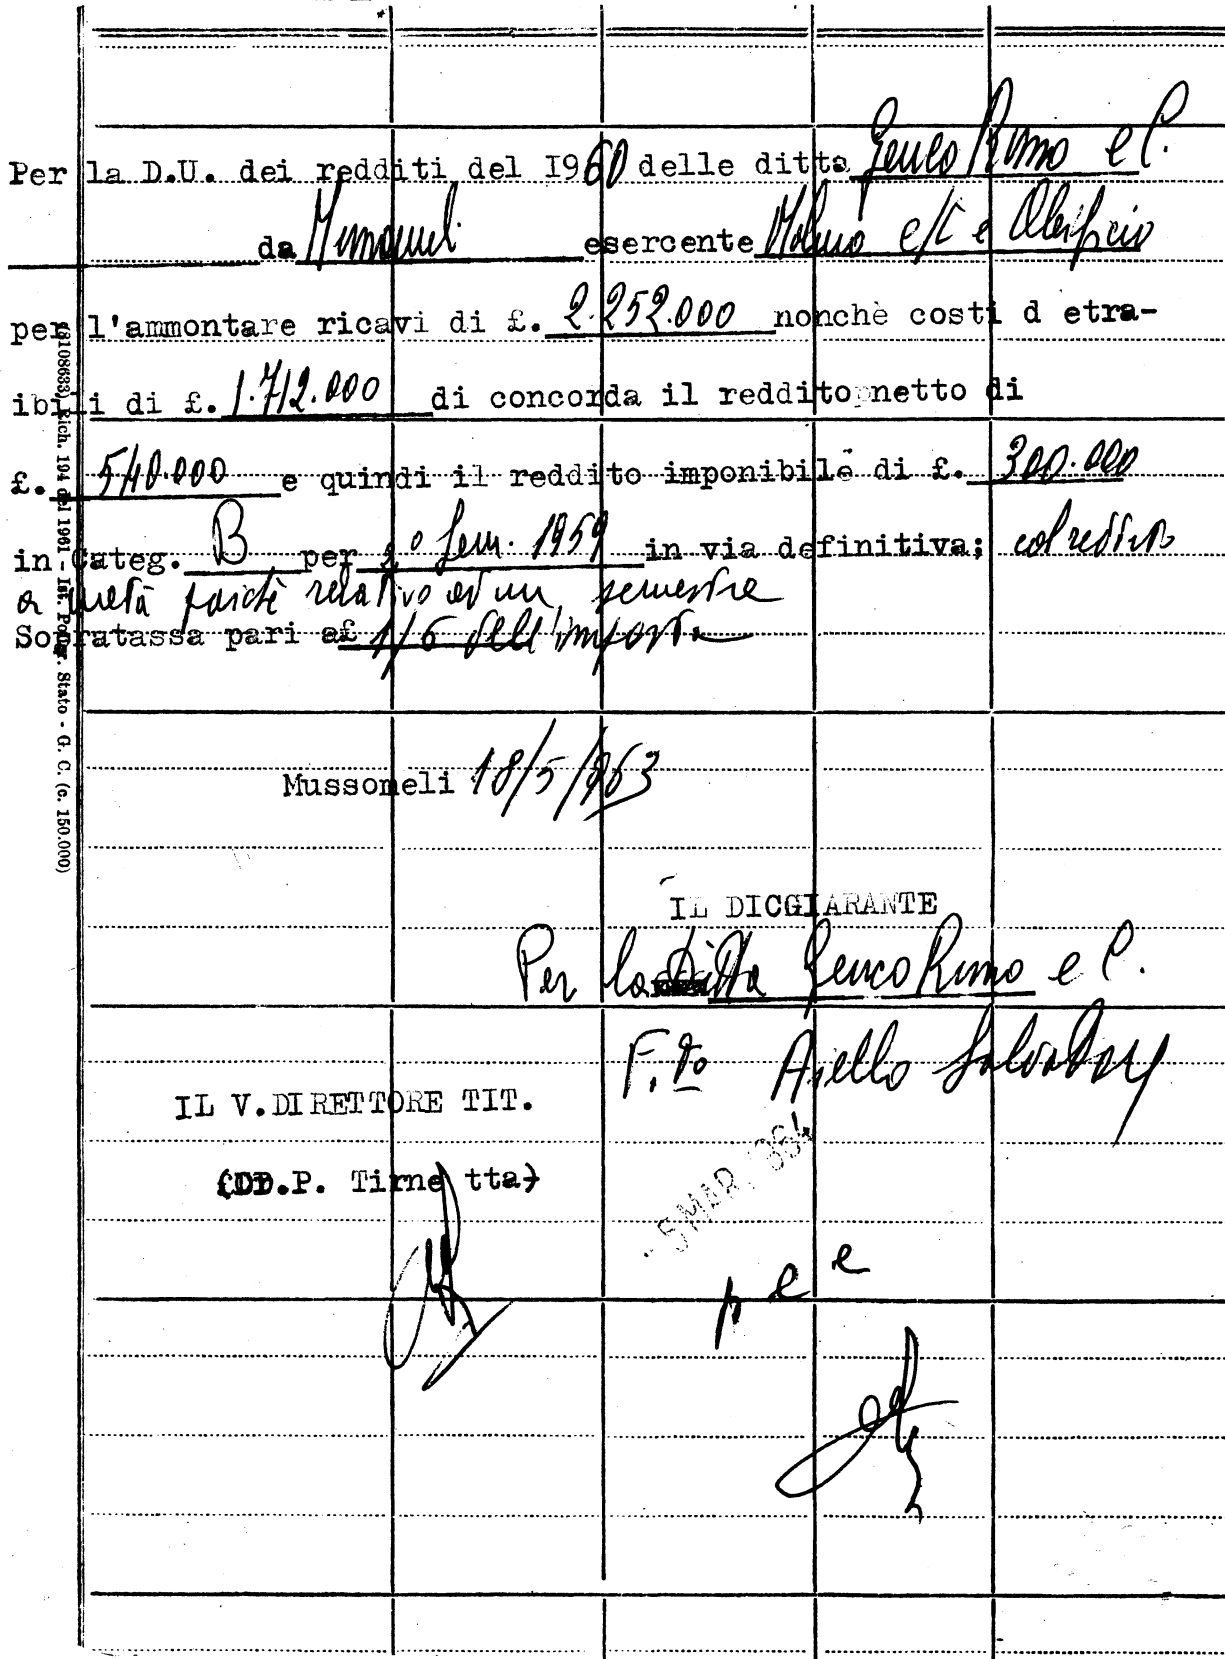 Per la D.U. dei redditi del I960 delle ditta Genco Rimo e C.
da Mussomeli esercente Molino c/t e Oleificio
per l'ammontare ricavi di £. 2.252.000 nonchè costi d etra-
ibili di £. 1.712.000 di concorda il reddito netto di
£. 540.000 e quindi il reddito imponibile di £. 300.000
in Categ. B per 2° Sem. 1959 in via definitiva; col reddito
a metà poichè relativo ad un semestre
Sopratassa pari a£ 1/6 dell'imposta
Mussomeli 18/5/1963
IL DICGIARANTE
Per la Ditta Genco Rimo e C.
F.to Aiello Salvatore
IL V.DIRETTORE TIT.
(DD.P. Tirne tta)
- 5 MAR. 1964
p e e
(8108633) Rich. 194 del 1961 - Ist. Poligr. Stato - G. C. (c. 150.000)